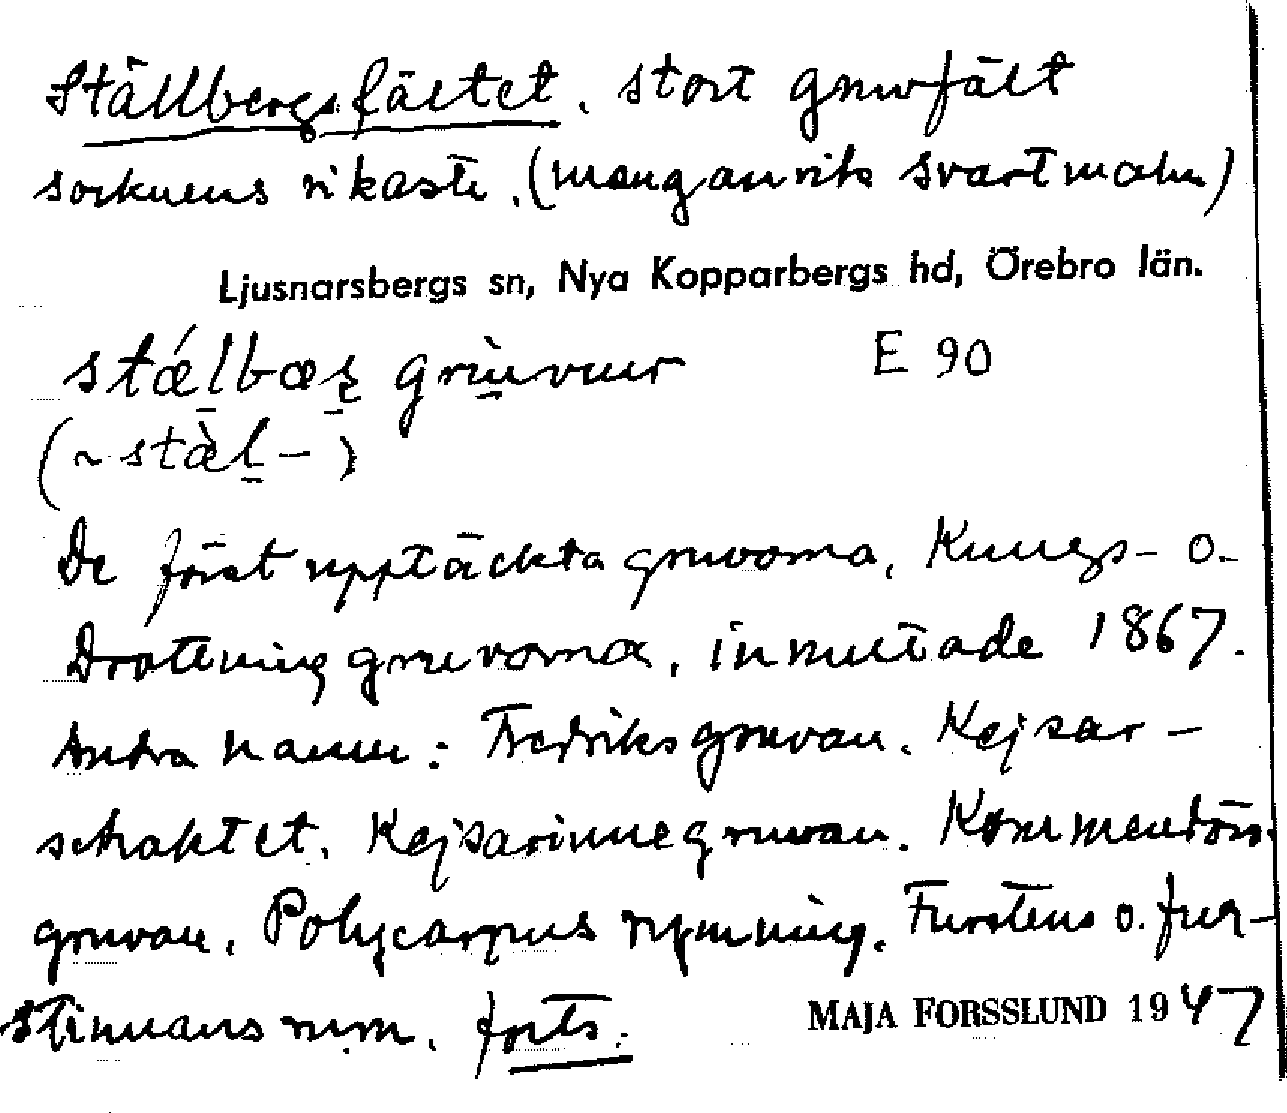 Ställbergsfältet. stort gruvfält
socknens rikaste. (manganrik svartmalm)
Ljusnarsbergs sn, Nya Kopparbergs hd, Örebro län.
stǽlbæṣ grùvuur E 90
(~ stæ̀l -)
De först upptäckta gruvorna, Kungs- o.
Drottninggruvorna, inmutade 1867.
Andra namn: Fredriksgruvan. Kejsar-
schaktet. Kejsarinnegruvan. Kommendörs
gruvan. Polycarpus rymning. Furstens o. fur-
stinnans rym. forts.
MAJA FORSSLUND 1947